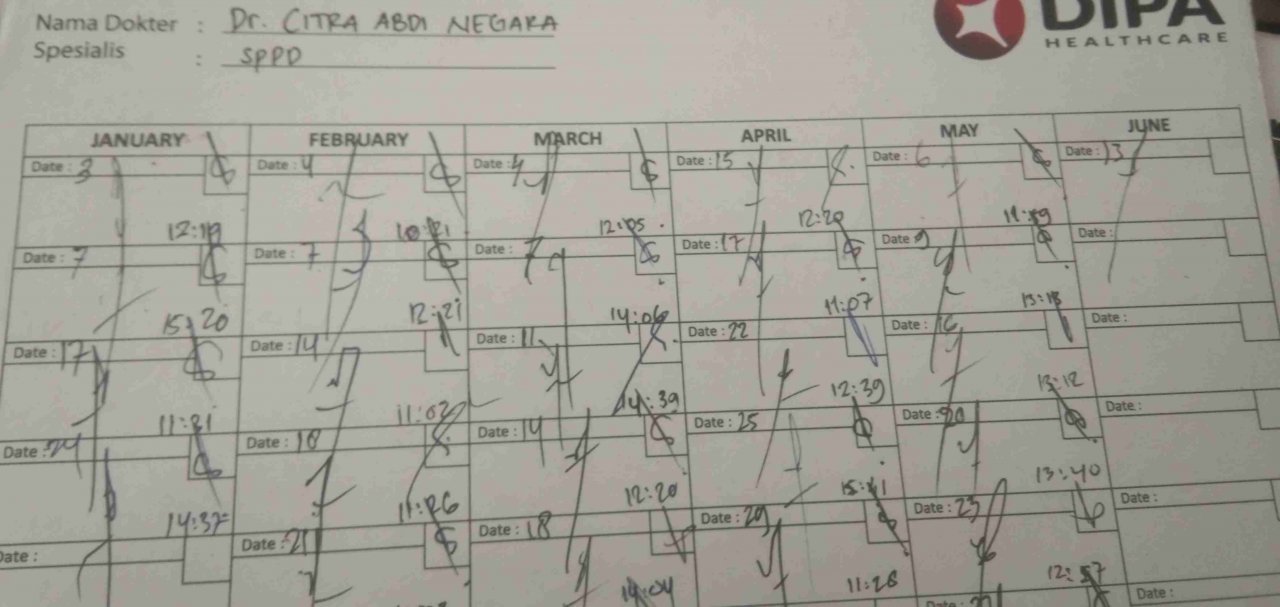 Nama Dokter : Dr. CITRA ABDI NEGARA
DIPA
HEALTHCARE
Spesialis : SPPD
JANUARY FEBRUARY MARCH APRIL MAY JUNE
Date : 3 Date : 4 Date : 4 Date : 15 Date : 6 Date : 13
12:19 10:21 12:05 12:20 11:59
Date : 7 Date : 7 Date : 7 Date : 17 Date : 9 Date :
15:20 12:21 14:06 11:07 13:18
Date : 17 Date : 14 Date : 11 Date : 22 Date : 16 Date :
11:21 11:02 14:39 12:39 13:12
Date : 24 Date : 18 Date : 14 Date : 25 Date : 20 Date :
14:37 11:26 12:20 15:41 13:40
Date : Date : 21 Date : 18 Date : 29 Date : 23 Date :
14:04 11:28 12:57
Date : Date :